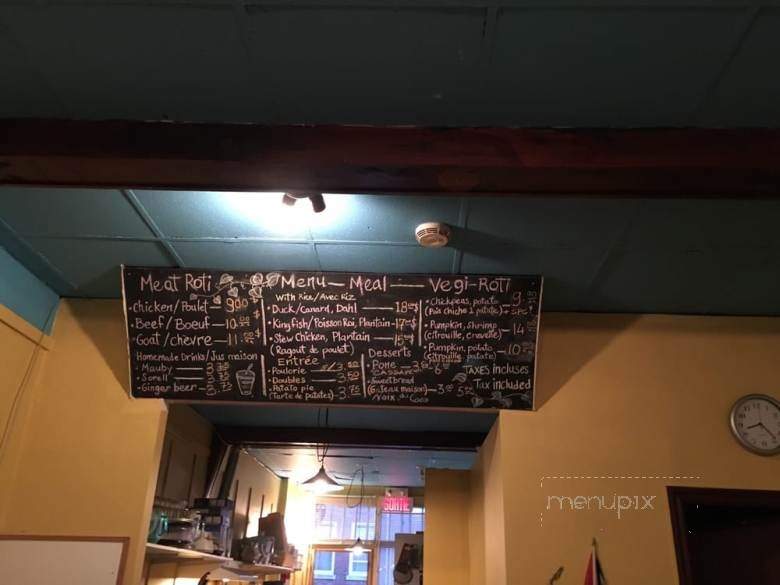 Meat Roti
Chicken/Poulet — 9.00
Beef/Boeuf — 10.00
Goat/chevre — 11.00
Homemade Drinks/Jus maison
Mauby
Sorell
Ginger beer
Menu — Meal
With Rice/Avec Riz
Duck/Canard, Dahl — 18
Kingfish/Poisson Roi, Plantain — 17
Stew Chicken, Plantain — 15
(Ragout de poulet)
Entrée
Poulorie
Doubles — 3.50
Potato pie
(Tarte de patates) — 3.75
Desserts
Pone
CASSAVA
Sweetbread
(Gateau maison)
Noix de Coco
Vegi-Roti
Chickpeas, potato — 9
(Pois chiche & patate)
Pumpkin, shrimp
(citrouille, crevette) — 14
Pumpkin, potato
(citrouille, patate) — 10
TAXES incluses
Tax included
SORTIE
menupix